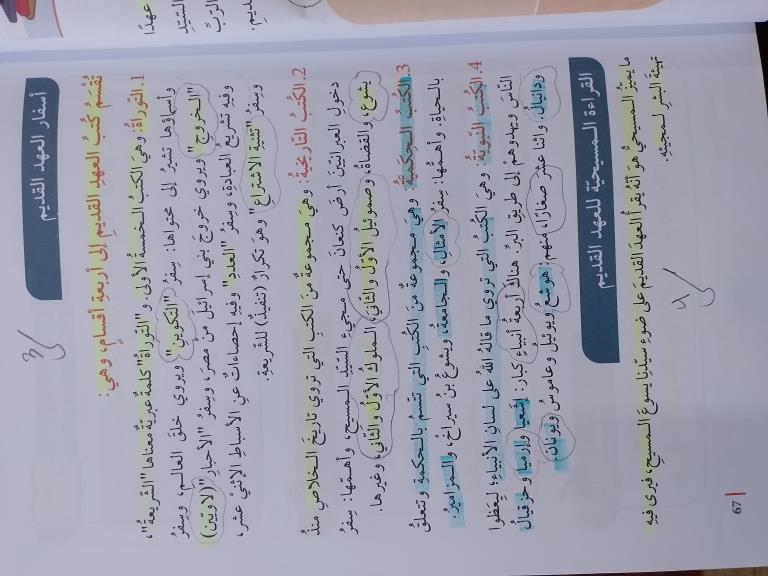 أسفار العهد القديم
تُقسَمُ كُتبُ العهدِ القديمِ إلى أربعةِ أقسامٍ، وهيَ:
1. التّوراةُ: وهيَ الكتبُ الخمسةُ الأولى. و"التّوراةُ" كلمةٌ عبريّةٌ معناها "الشّريعةُ"،
وأسماؤها تشيرُ إلى محتواها: سِفرُ "التّكوينِ" ويروي خلقَ العالمِ، وسِفرُ
"الخروجِ" ويروي خروجَ بني إسرائيلَ من مصرَ، وسِفرُ "الأحبارِ" (لاويّين)
وفيهِ تشريعُ العبادةِ، وسِفرُ "العددِ" وفيهِ إحصاءاتٌ عن الأسباطِ الإثنَيْ عشرَ،
وسِفرُ "تثنيةِ الاشتراعِ" وهوَ تَكرارٌ (تنفيذٌ) للشّريعةِ.
2. الكتبُ التّاريخيّةُ: وهيَ مجموعةٌ منَ الكتبِ التي تروي تاريخَ الخلاصِ منذُ
دخولِ العبرانيّينَ أرضَ كنعانَ حتى مجيءِ السّيّدِ المسيحِ، وأهمّها: سِفرُ
يشوعَ، والقضاةُ، وصموئيلُ الأوّلُ والثّاني، الملوكُ الأوّلُ والثّاني، وغيرها.
3. الكتبُ الحكميّةُ: وهيَ مجموعةٌ منَ الكتبِ التي تتّسمُ بالحكمةِ وتتعلّقُ
بالحياةِ. وأهمّها: سِفرُ الأمثالِ، والجامعةُ، ويشوعُ بنُ سيراخَ، والمزاميرُ.
4. الكتبُ النّبويّةُ: وهيَ الكتبُ التي تروي ما قالهُ اللهُ على لسانِ الأنبياءِ؛ ليَعِظوا
النّاسَ ويهدوهم إلى طريقِ البرِّ. هناكَ أربعةُ أنبياءٍ كبارٍ: إشعيا وإرميا وحزقيالُ
ودانيالُ. واثنا عشرَ صغارًا، منهم: هوشعُ ويوئيلُ وعاموسُ ويونانُ.
القراءة المسيحيّة للعهد القديم
ما يميّزُ المسيحيَّ هوَ أنّهُ يقرأُ العهدَ القديمَ على ضوءِ سيّدِنا يسوعَ المسيحِ، فيرى فيهِ
تهيئةَ البشرِ لمجيئِهِ.
67